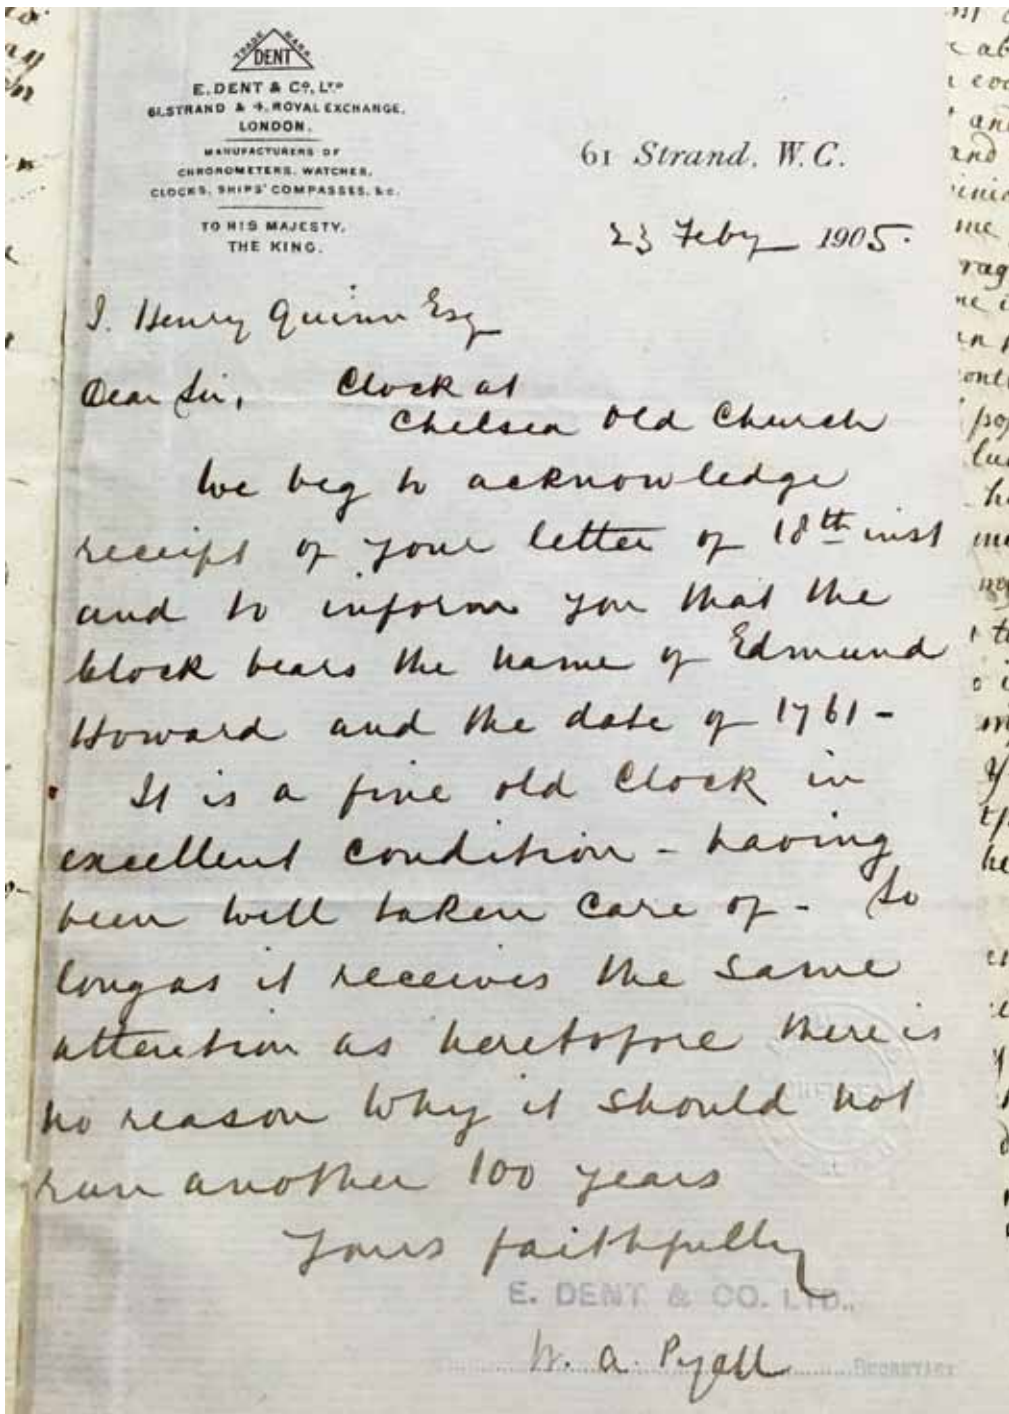 TRADE MARK
DENT
E. DENT & Co, LTD
61, STRAND & 4, ROYAL EXCHANGE,
LONDON.
MANUFACTURERS OF
CHRONOMETERS, WATCHES,
CLOCKS, SHIPS' COMPASSES, &c.
TO HIS MAJESTY,
THE KING.
61 Strand, W.C.
23 Feby 1905.
J. Henry Quinn Esq
Dear Sir, Clock at
Chelsea Old Church
We beg to acknowledge
receipt of your letter of 18th inst
and to inform you that the
clock bears the name of Edmund
Howard and the date of 1761 -
It is a fine old Clock in
excellent condition - having
been well taken care of - So
long as it receives the same
attention as heretofore there is
no reason why it should not
run another 100 years
Yours faithfully
E. DENT & CO. LTD.,
W. A. Pyall
SECRETARY